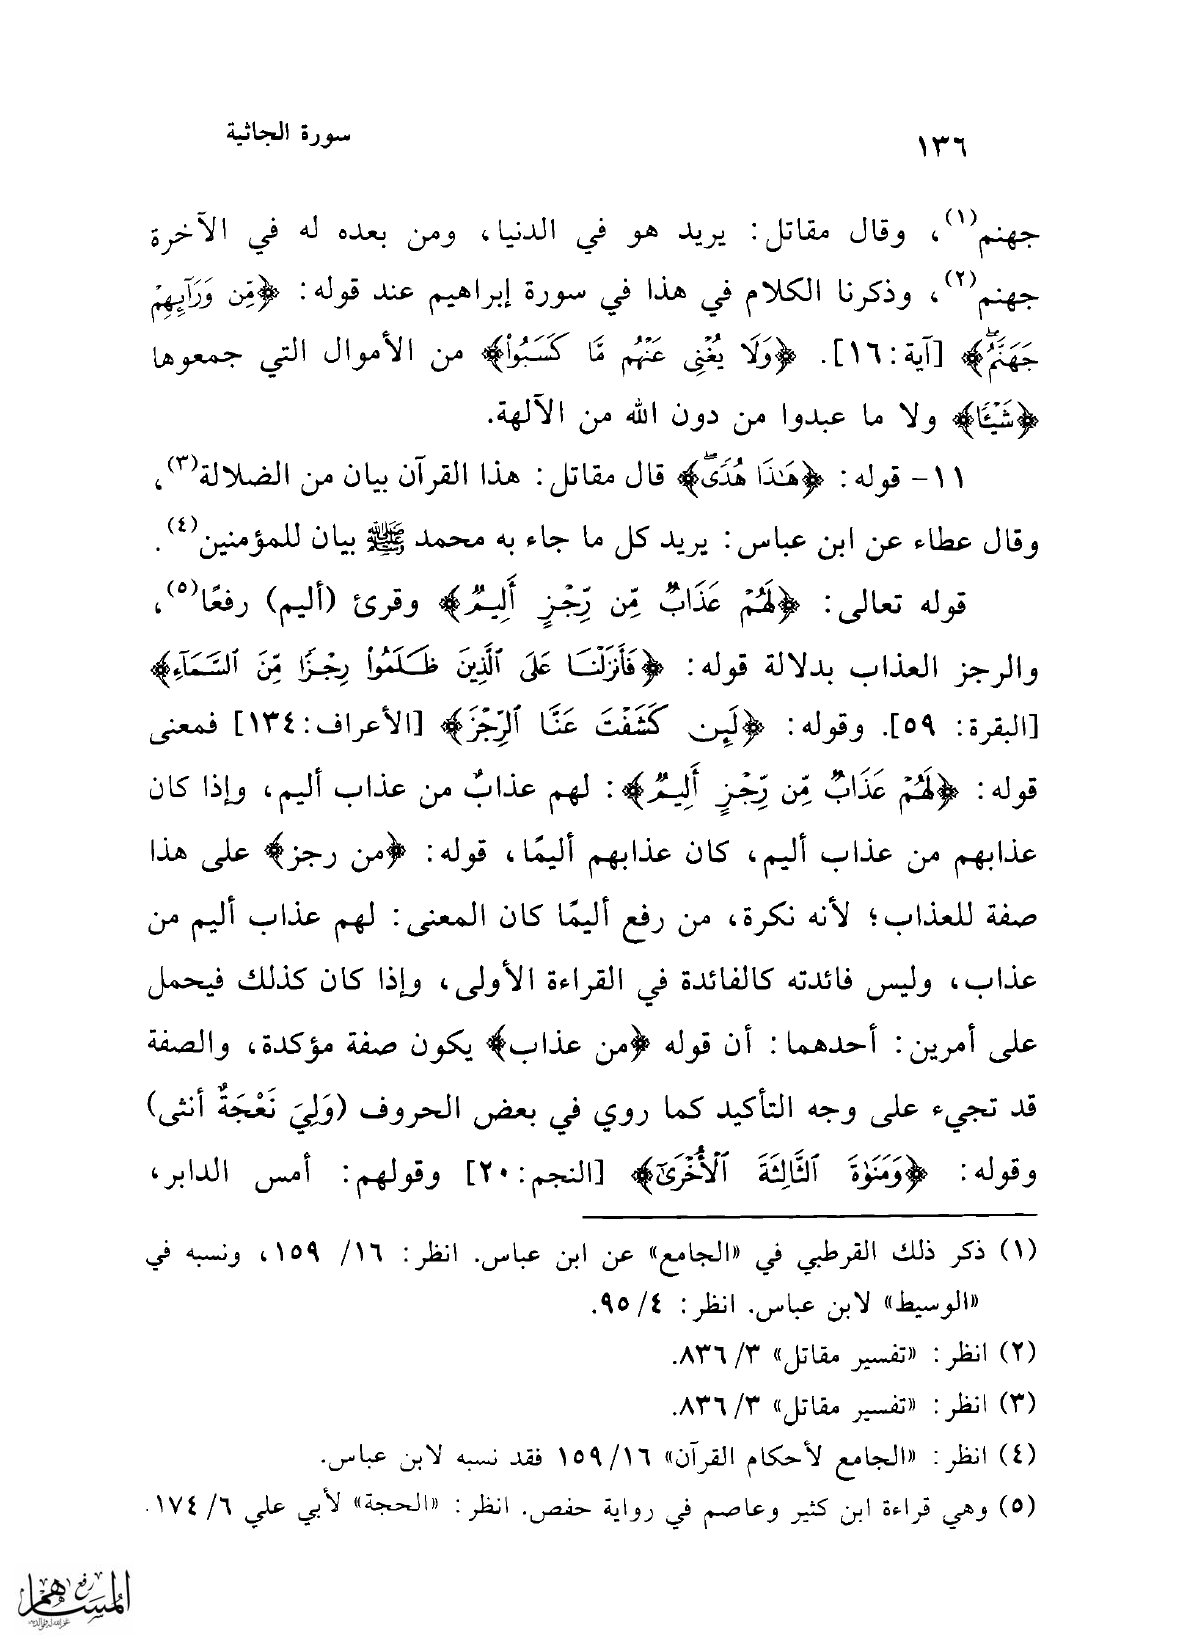 ١٣٦
سورة الجاثية
جهنم(١)، وقال مقاتل: يريد هو في الدنيا، ومن بعده له في الآخرة
جهنم(٢)، وذكرنا الكلام في هذا في سورة إبراهيم عند قوله: ﴿مِّن وَرَآئِهِمْ
جَهَنَّمُۖ﴾ [آية:١٦]. ﴿وَلَا يُغْنِى عَنْهُم مَّا كَسَبُوا۟﴾ من الأموال التي جمعوها
﴿شَيْـًٔا﴾ ولا ما عبدوا من دون الله من الآلهة.
١١- قوله: ﴿هَـٰذَا هُدًىۖ﴾ قال مقاتل: هذا القرآن بيان من الضلالة(٣)،
وقال عطاء عن ابن عباس: يريد كل ما جاء به محمد ﷺ بيان للمؤمنين(٤).
قوله تعالى: ﴿لَهُمْ عَذَابٌ مِّن رِّجْزٍ أَلِيمٌ﴾ وقرئ (أليم) رفعًا(٥)،
والرجز العذاب بدلالة قوله: ﴿فَأَنزَلْنَا عَلَى ٱلَّذِينَ ظَلَمُوا۟ رِجْزًا مِّنَ ٱلسَّمَآءِ﴾
[البقرة: ٥٩]. وقوله: ﴿لَئِن كَشَفْتَ عَنَّا ٱلرِّجْزَ﴾ [الأعراف:١٣٤] فمعنى
قوله: ﴿لَهُمْ عَذَابٌ مِّن رِّجْزٍ أَلِيمٌ﴾: لهم عذابٌ من عذاب أليم، وإذا كان
عذابهم من عذاب أليم، كان عذابهم أليمًا، قوله: ﴿من رجز﴾ على هذا
صفة للعذاب؛ لأنه نكرة، من رفع أليمًا كان المعنى: لهم عذاب أليم من
عذاب، وليس فائدته كالفائدة في القراءة الأولى، وإذا كان كذلك فيحمل
على أمرين: أحدهما: أن قوله ﴿من عذاب﴾ يكون صفة مؤكدة، والصفة
قد تجيء على وجه التأكيد كما روي في بعض الحروف (وَلِيَ نَعْجَةٌ أنثى)
وقوله: ﴿وَمَنَوٰةَ ٱلثَّالِثَةَ ٱلْأُخْرَىٰٓ﴾ [النجم:٢٠] وقولهم: أمس الدابر،
(١) ذكر ذلك القرطبي في «الجامع» عن ابن عباس. انظر: ١٦/ ١٥٩، ونسبه في
«الوسيط» لابن عباس. انظر: ٤/ ٩٥.
(٢) انظر: «تفسير مقاتل» ٣/ ٨٣٦.
(٣) انظر: «تفسير مقاتل» ٣/ ٨٣٦.
(٤) انظر: «الجامع لأحكام القرآن» ١٦/ ١٥٩ فقد نسبه لابن عباس.
(٥) وهي قراءة ابن كثير وعاصم في رواية حفص. انظر: «الحجة» لأبي علي ٦/ ١٧٤.